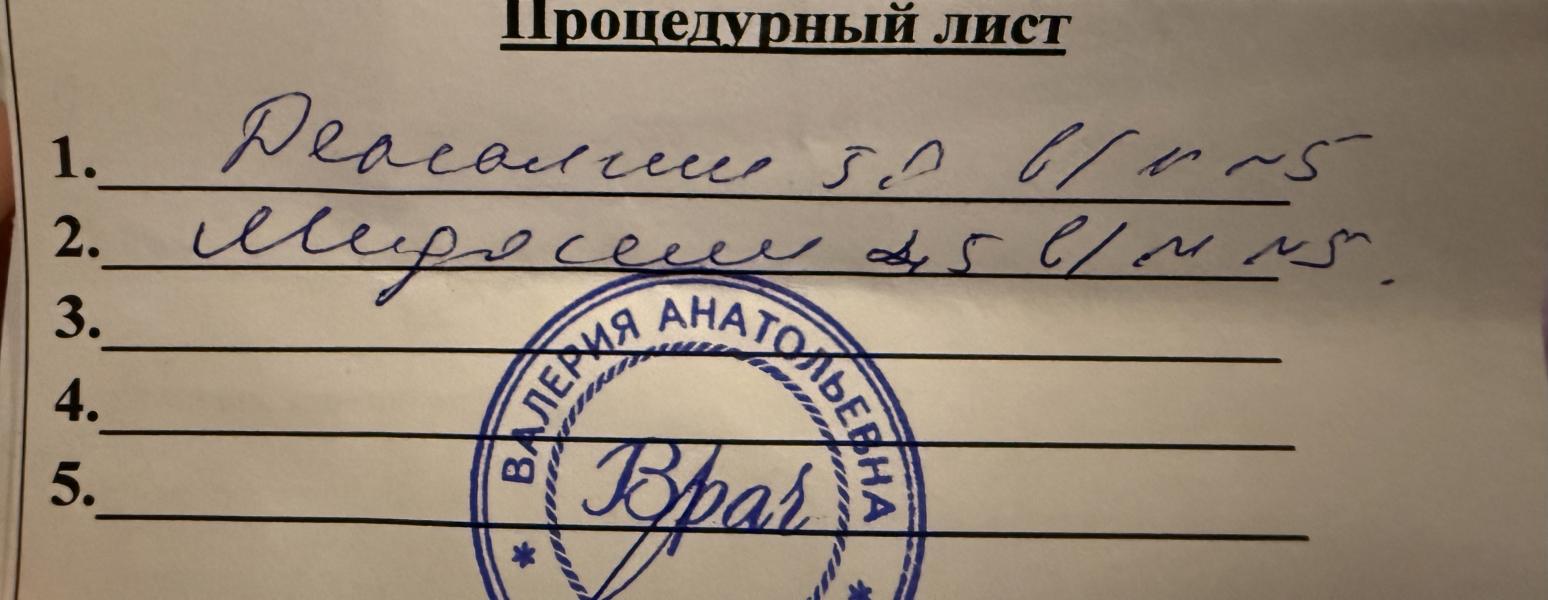 Процедурный лист
1. Дексалгин 5.0 в/м №5
2. Мидосин в/м №5.
3.
4.
5.
ВАЛЕРИЯ АНАТОЛЬЕВНА
Врач